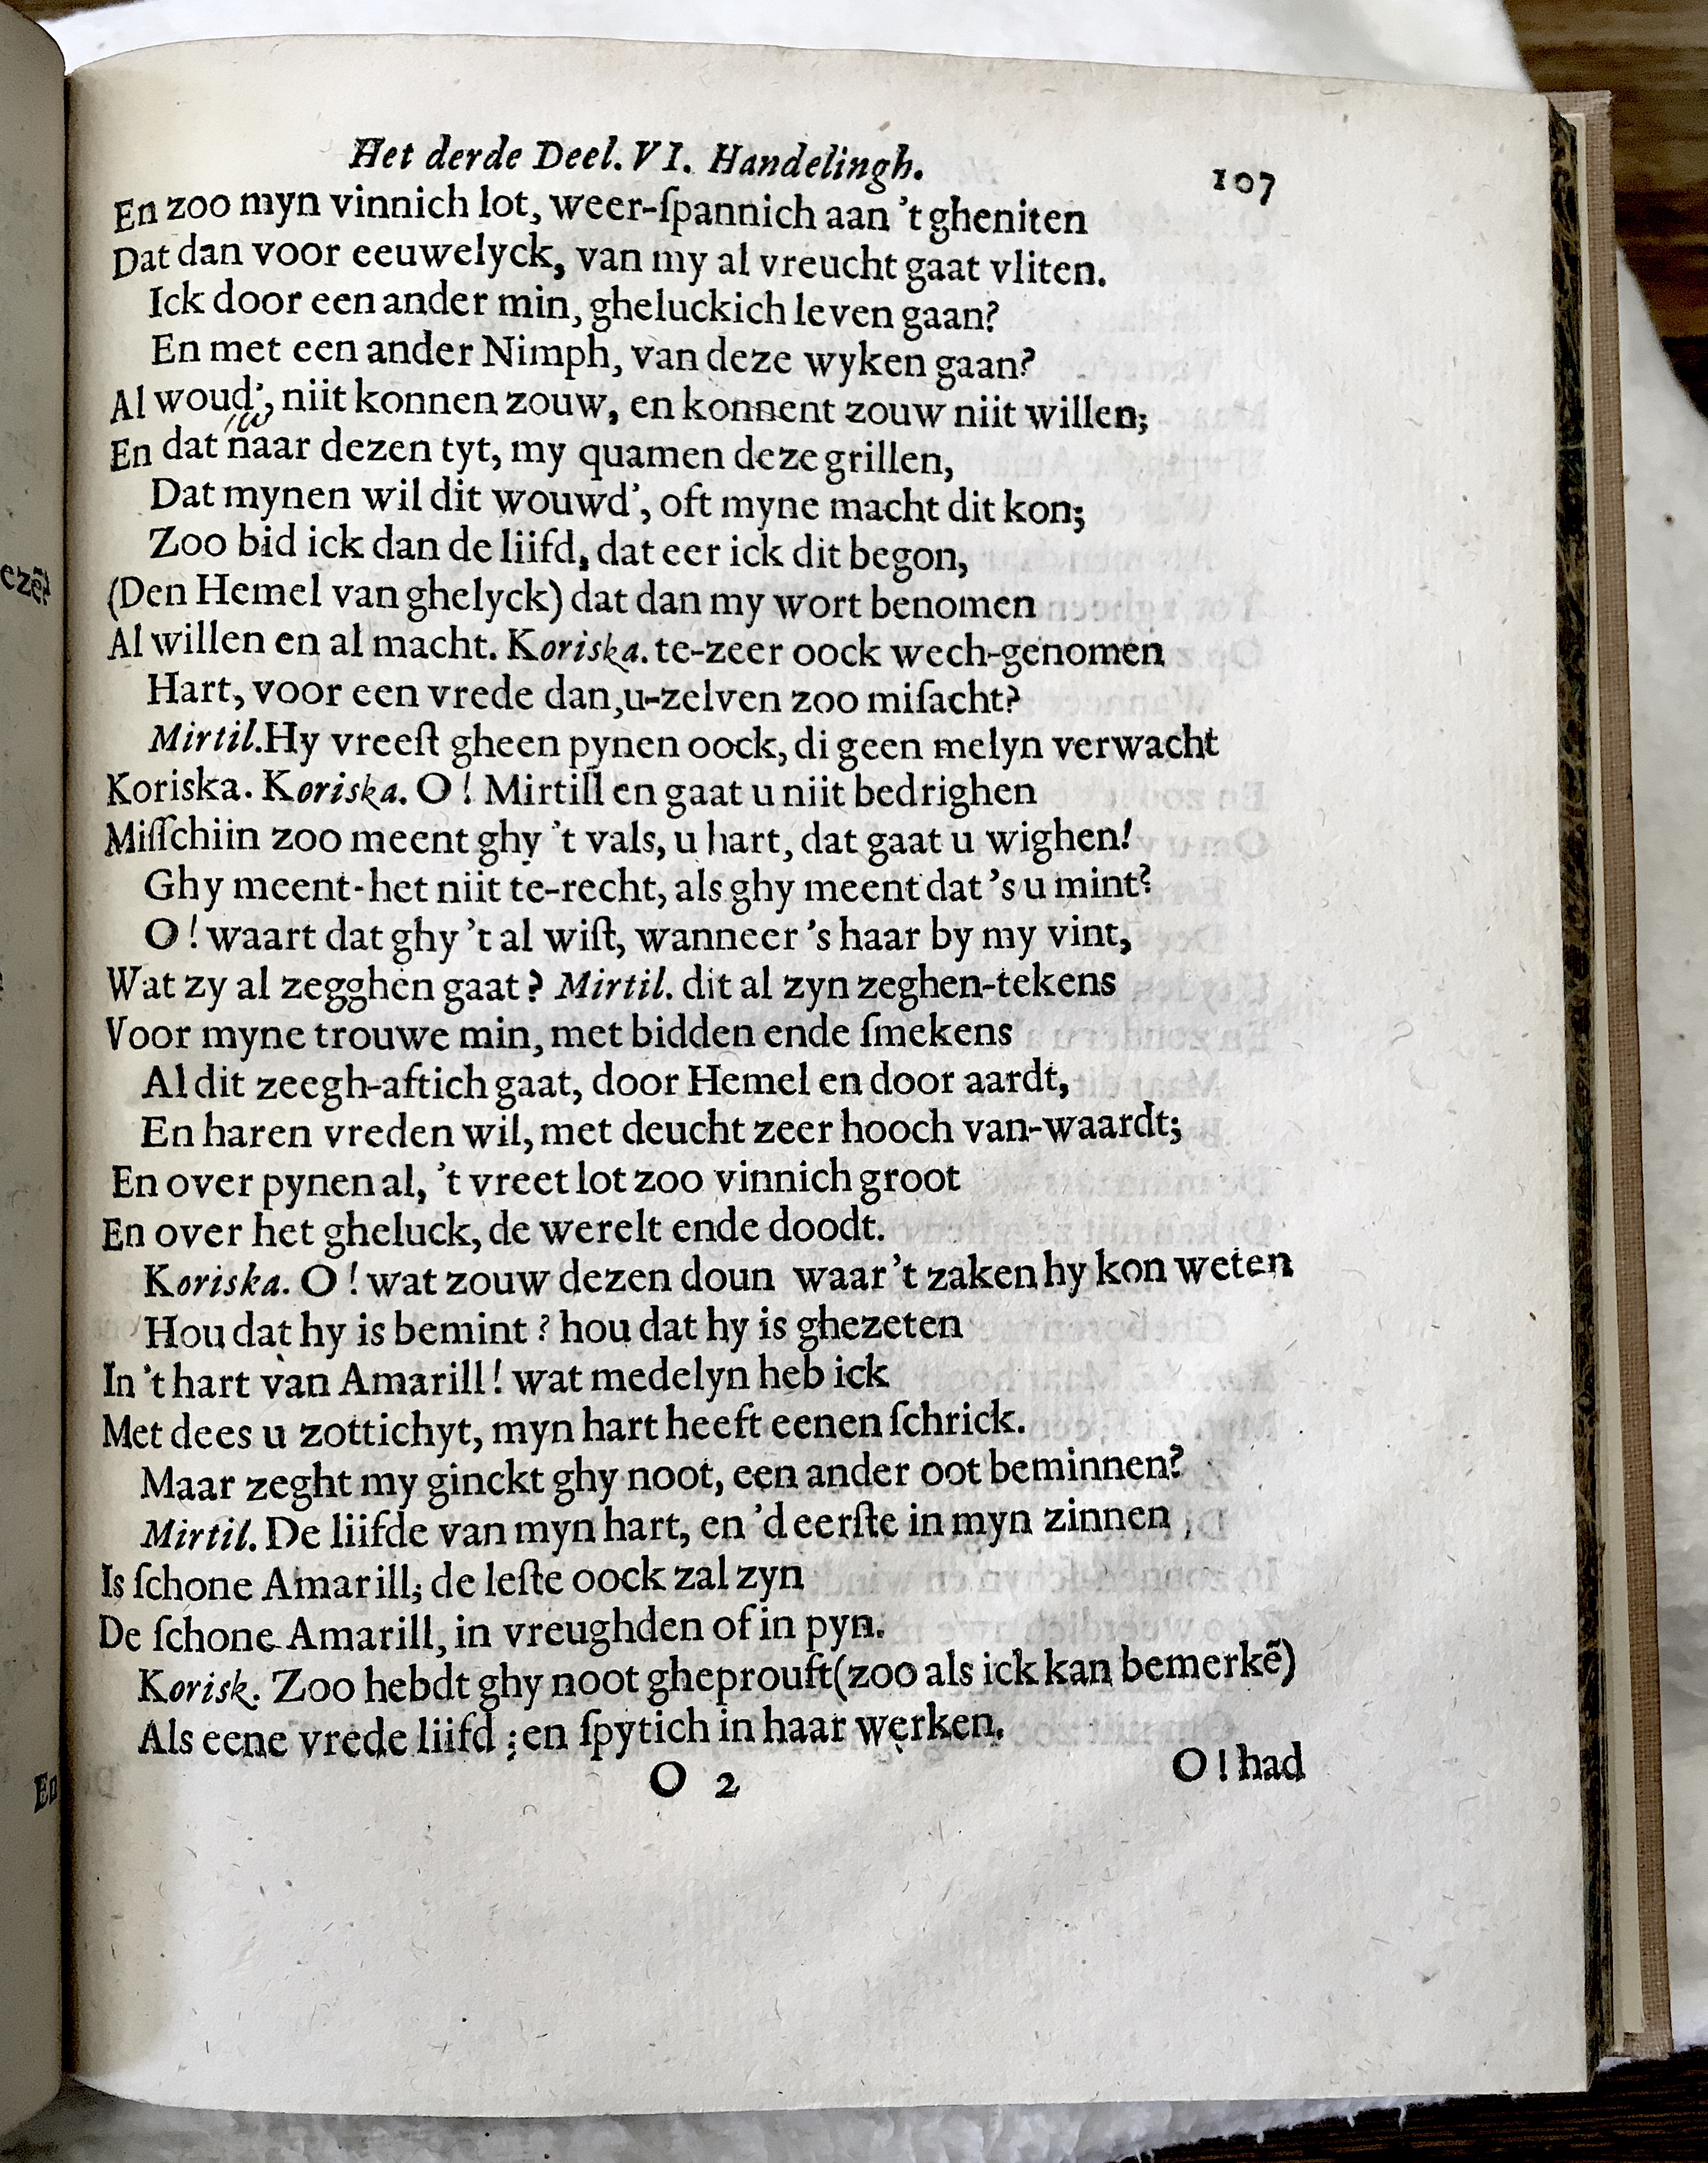 Het derde Deel. VI. Handelingh. 107
En zoo myn vinnich lot, weer-ſpannich aan 't gheniten
Dat dan voor eeuwelyck, van my al vreucht gaat vliten.
Ick door een ander min, gheluckich leven gaan?
En met een ander Nimph, van deze wyken gaan?
Al woud', niit konnen zouw, en konnent zouw niit willen;
En dat naar dezen tyt, my quamen deze grillen,
Dat mynen wil dit wouwd', oft myne macht dit kon;
Zoo bid ick dan de liifd, dat eer ick dit begon,
(Den Hemel van ghelyck) dat dan my wort benomen
Al willen en al macht. Koriska. te-zeer oock wech-genomen
Hart, voor een vrede dan, u-zelven zoo miſacht?
Mirtil. Hy vreeſt gheen pynen oock, di geen melyn verwacht
Koriska. Koriska. O! Mirtill en gaat u niit bedrighen
Miſſchiin zoo meent ghy 't vals, u hart, dat gaat u wighen!
Ghy meent-het niit te-recht, als ghy meent dat 's u mint?
O! waart dat ghy 't al wiſt, wanneer 's haar by my vint,
Wat zy al zegghen gaat? Mirtil. dit al zyn zeghen-tekens
Voor myne trouwe min, met bidden ende ſmekens
Al dit zeegh-aftich gaat, door Hemel en door aardt,
En haren vreden wil, met deucht zeer hooch van-waardt;
En over pynen al, 't vreet lot zoo vinnich groot
En over het gheluck, de werelt ende doodt.
Koriska. O! wat zouw dezen doun waar 't zaken hy kon weten
Hou dat hy is bemint? hou dat hy is ghezeten
In 't hart van Amarill! wat medelyn heb ick
Met dees u zottichyt, myn hart heeft eenen ſchrick.
Maar zeght my ginckt ghy noot, een ander oot beminnen?
Mirtil. De liifde van myn hart, en 'd eerſte in myn zinnen
Is ſchone Amarill; de leſte oock zal zyn
De ſchone Amarill, in vreughden of in pyn.
Korisk. Zoo hebdt ghy noot gheprouft (zoo als ick kan bemerkẽ)
Als eene vrede liifd; en ſpytich in haar werken.
O 2 O! had
ezẽ?
En